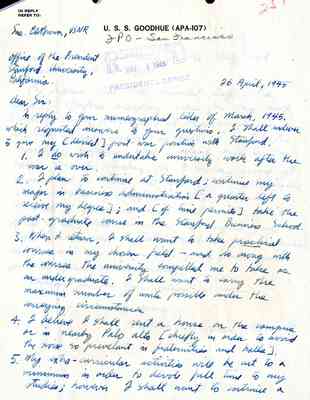 IN REPLY
REFER TO:
U. S. S. GOODHUE (APA-107)
FPO - San Francisco
Office of the President
Stanford University,
California.
PRESIDENT
26 April, 1945
Dear Sir:
In reply to your mimeographed letter of March, 1945,
which requested answers to your questions, I shall
to give my [desired] post war position with Stanford.
1. I do wish to undertake university work after the
war is over.
2. I plan to continue at Stanford; continue my
major in business administration [a quarter left to
receive my degree]; and [if time permits] take the
post-graduate course in the Stanford Business School.
3. When I return, I shall want to take practical
courses in my chosen field - and do away with
the courses the university compelled me to take as
an undergraduate. I shall want to carry the
maximum number of units possible under the
circumstances.
4. I believe I shall rent a house on the campus
or in nearby Palo Alto [chiefly in order to avoid
the so prevalent in fraternities and halls].
5. My extra-curricular activities will be cut to a
minimum in order to devote full time to my
studies; however I shall want to continue a